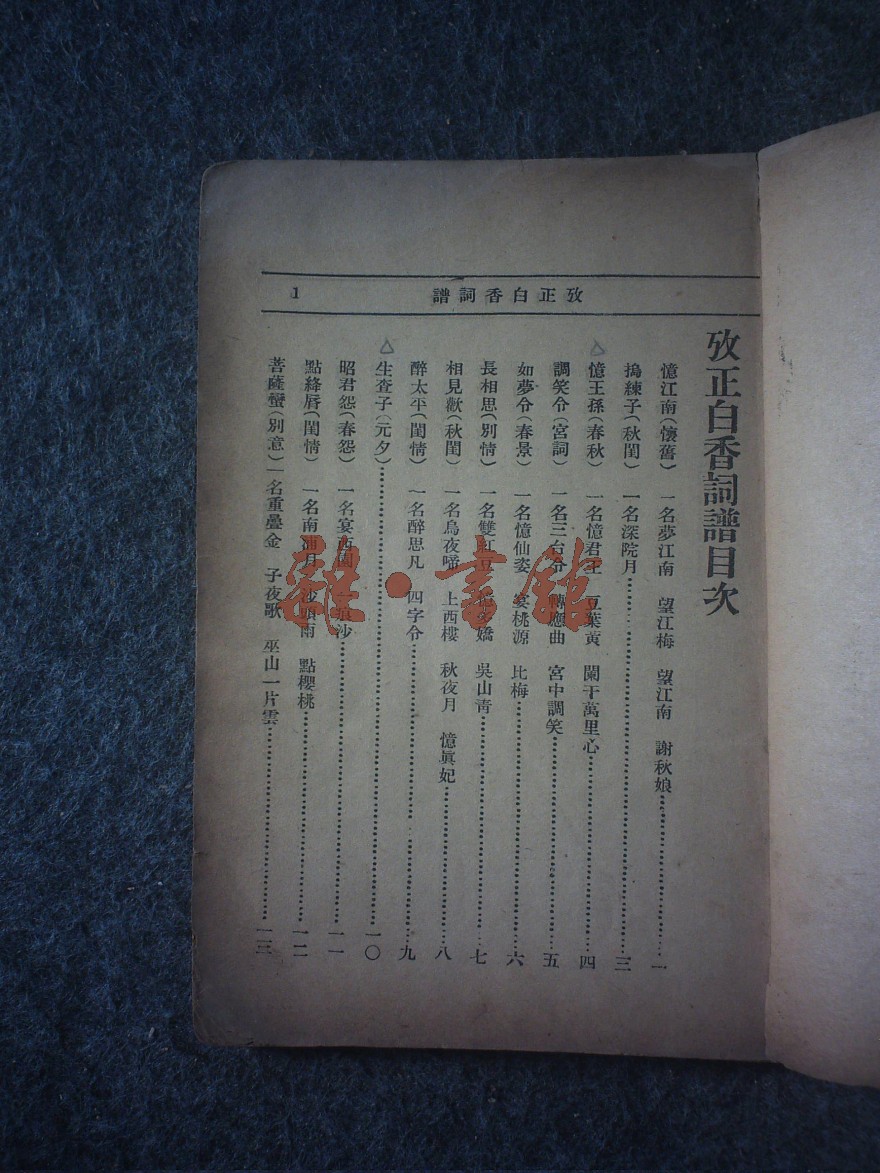 攷正白香詞譜
1
攷正白香詞譜目次
憶江南(懷舊) 一名夢江南 望江梅 望江南 謝秋娘……一
搗練子(秋閨) 一名深院月……三
△憶王孫(春秋) 一名憶君王 豆葉黃 闌干萬里心……四
調笑令(宮詞) 一名三台令 轉應曲 宮中調笑……五
如夢令(春景) 一名憶仙姿 宴桃源 比梅……六
長相思(別情) 一名雙紅豆 嬌 吳山青……七
相見歡(秋閨) 一名烏夜啼 上西樓 秋夜月 憶眞妃……八
醉太平(閨情) 一名醉思凡 四字令……九
△生查子(元夕)……一〇
昭君怨(春怨) 一名宴西園 一痕沙……一一
點絳唇(閨情) 一名南浦月 沙頭雨 點櫻桃……一二
菩薩蠻(別意) 一名重疊金 子夜歌 巫山一片雲……一三
雜·書館